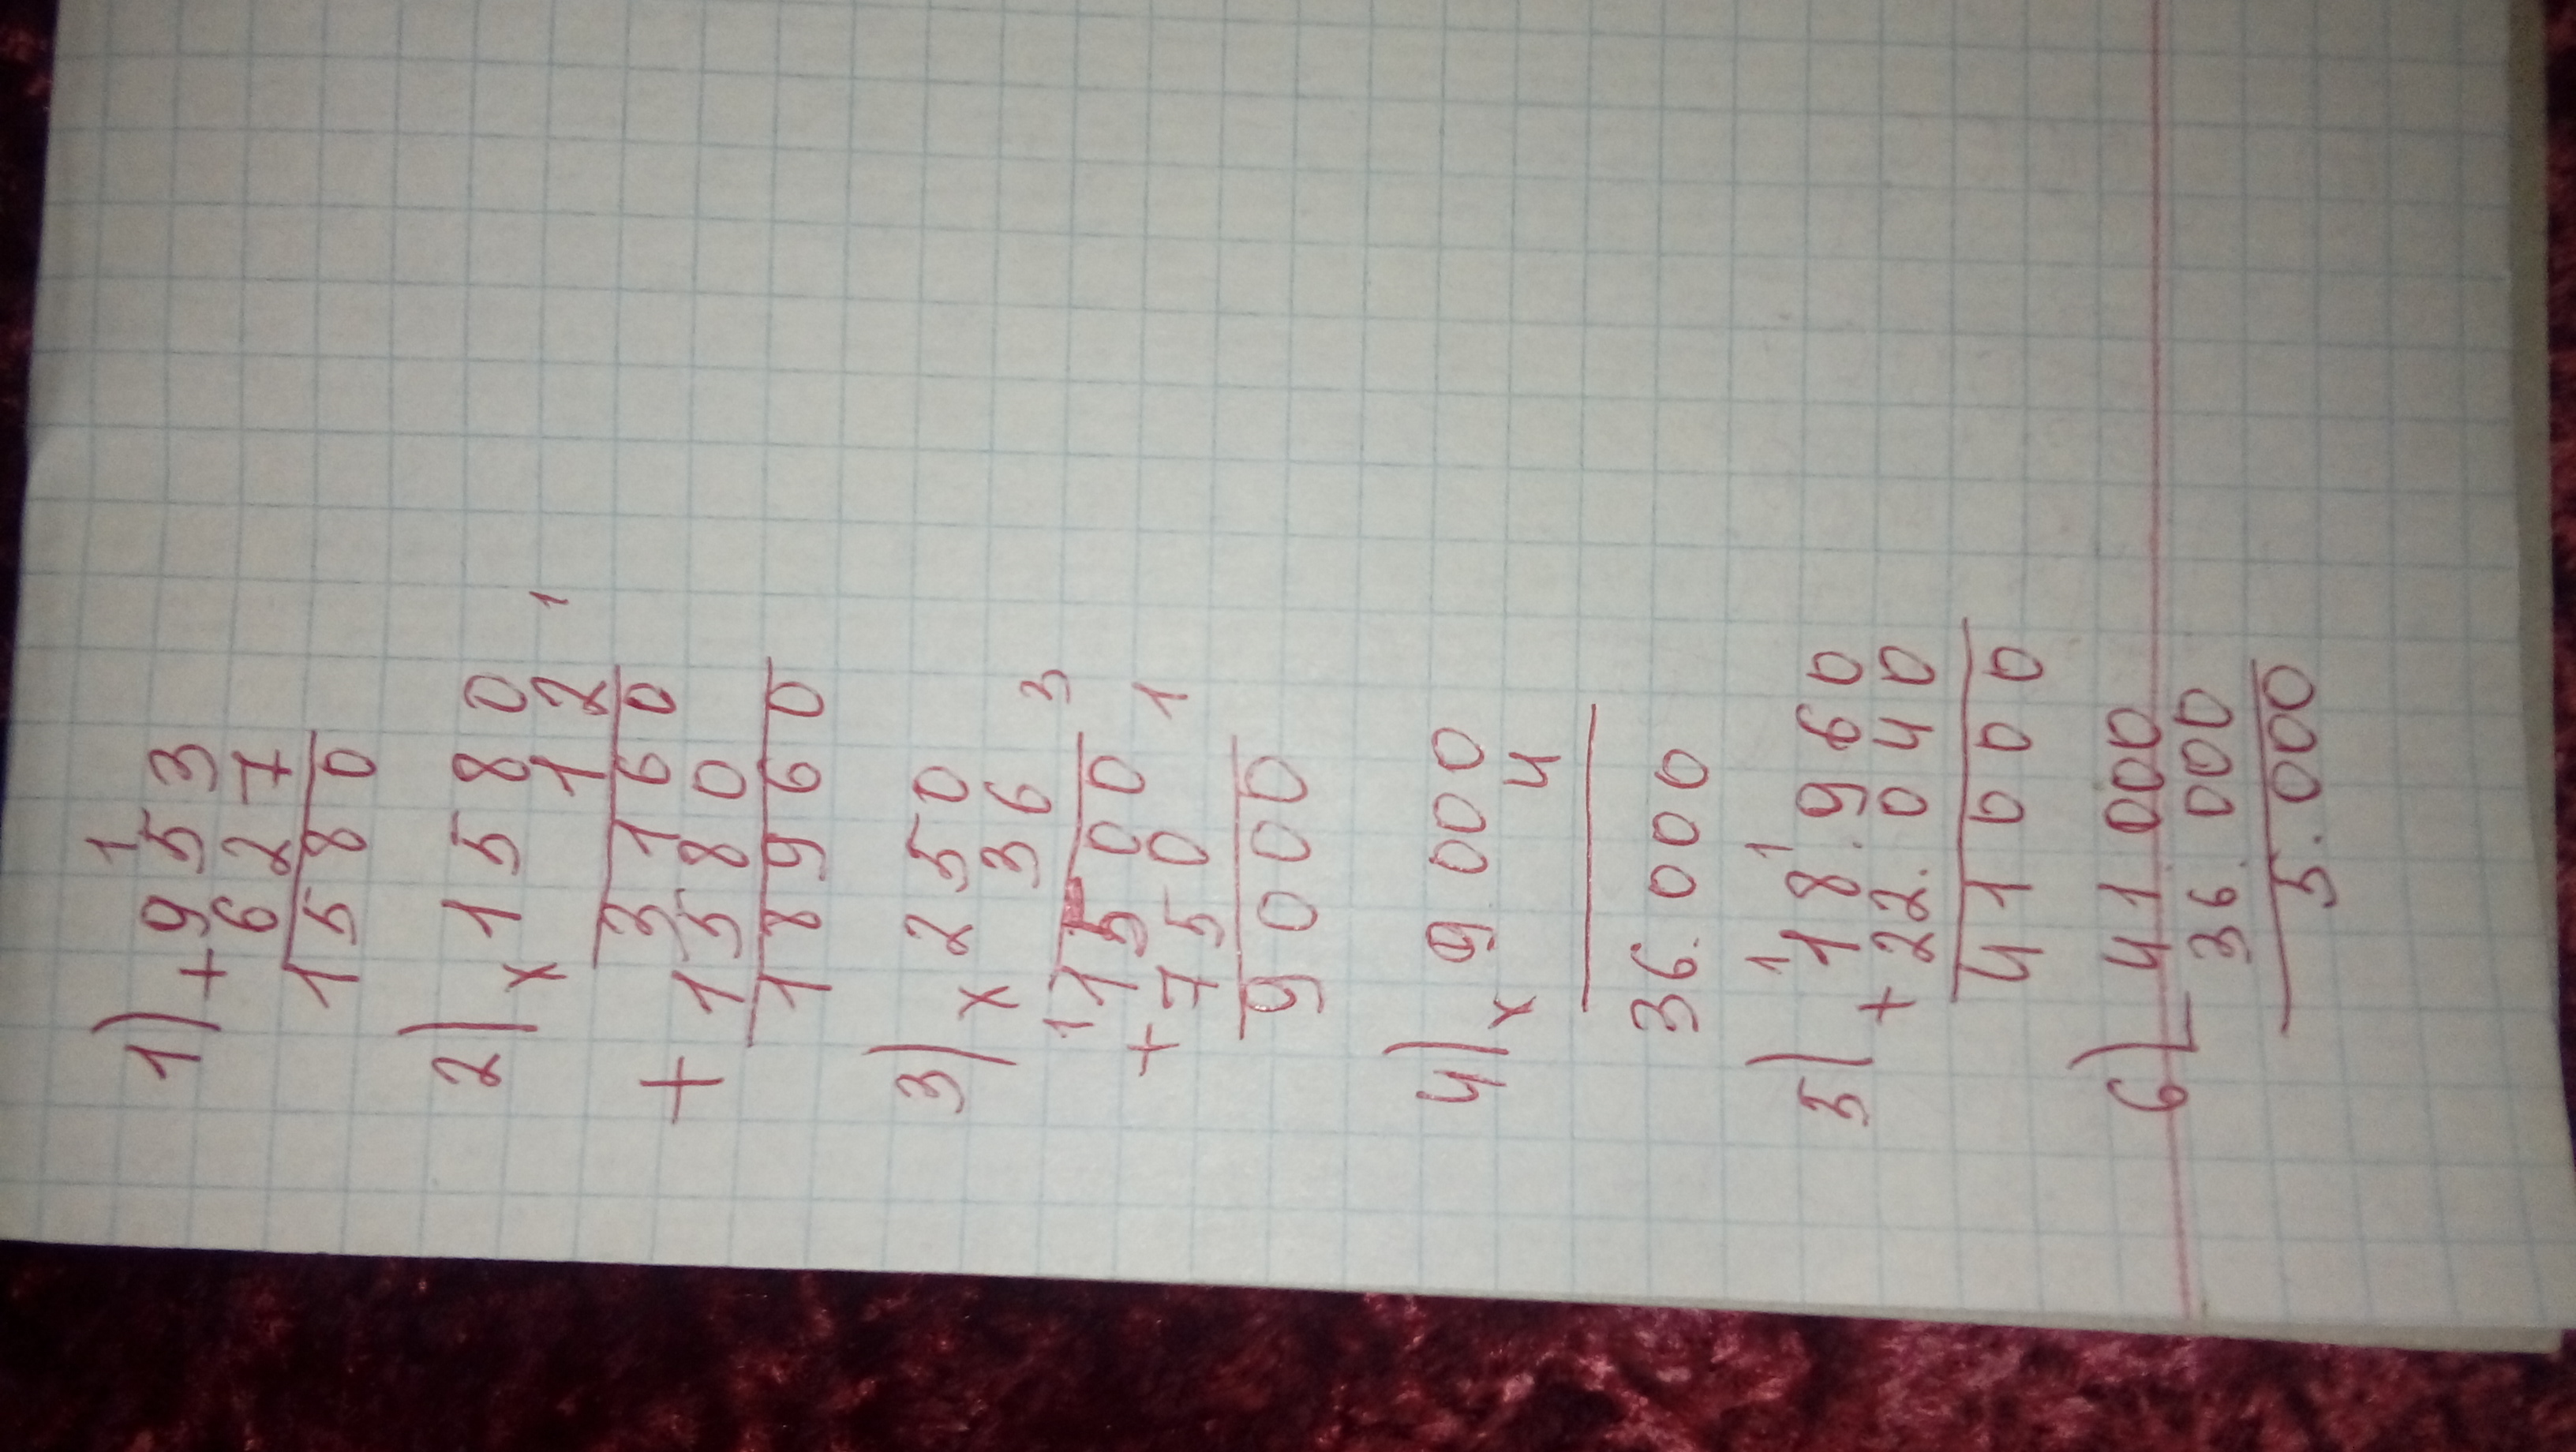 1
1) + 953
627
1580
2) x 1580
12 1
3160
+ 1580
18960
3) x 250
36
3
1 1500
+ 750 1
9000
4) x 9000
4
36.000
1 1
5) 18.960
+ 22.040
41000
6) - 41000
36.000
5.000